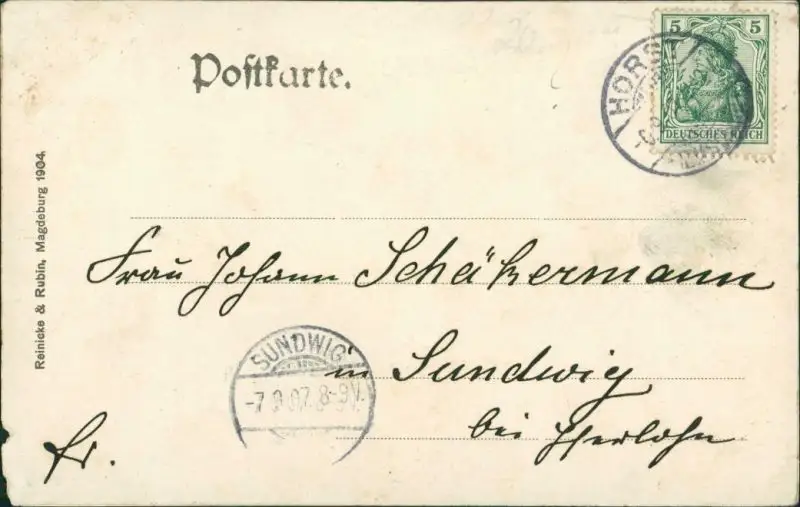 Postkarte.
5 5
DEUTSCHES REICH
HORST
Reinicke & Rubin, Magdeburg 1904.
Frau Johann Schäkermann
SUNDWIG
-7.9.07. 8-9V.
in Sundwig
bei Iserlohn
fr.